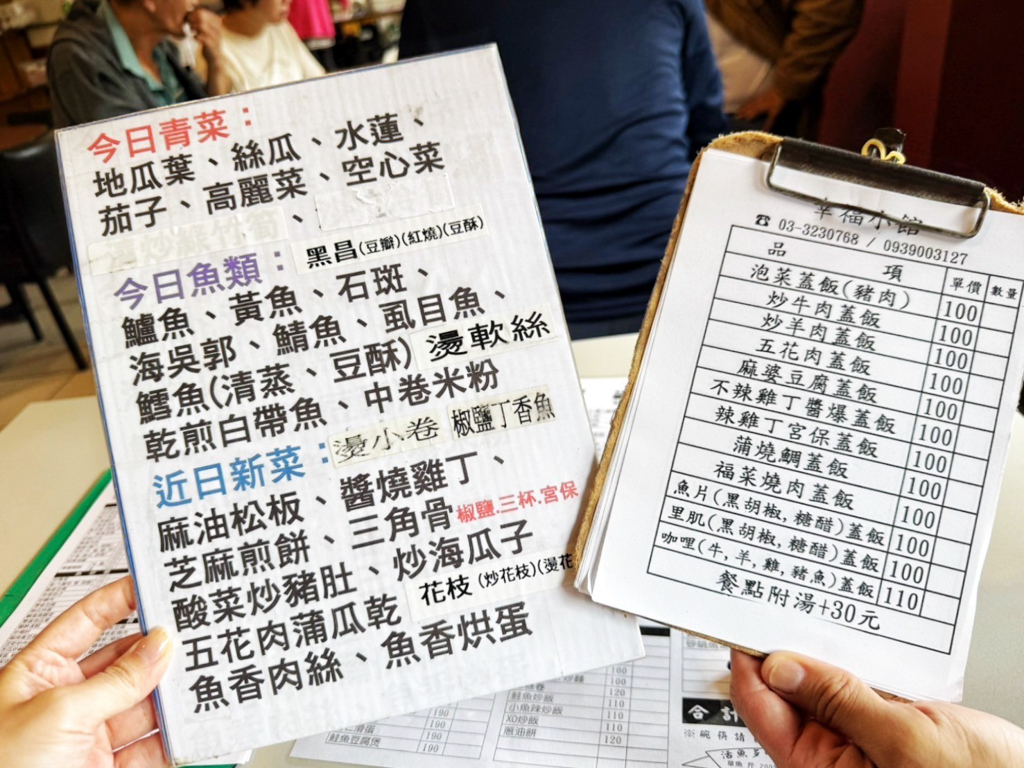 今日青菜：
地瓜葉、絲瓜、水蓮、
茄子、高麗菜、空心菜
、
黑昌(豆瓣)(紅燒)(豆酥)
今日魚類：
鱸魚、黃魚、石斑、
海吳郭、鯖魚、虱目魚、
鱈魚(清蒸、豆酥) 燙軟絲
乾煎白帶魚、中卷米粉
近日新菜： 燙小卷 椒鹽丁香魚
麻油松板、醬燒雞丁、
芝麻煎餅、三角骨 椒鹽.三杯.宮保
酸菜炒豬肚、炒海瓜子
五花肉蒲瓜乾 花枝(炒花枝)(燙花
魚香肉絲、魚香烘蛋
幸福小館
☎ 03-3230768 / 0939003127
品項 單價 數量
泡菜蓋飯(豬肉) 100
炒牛肉蓋飯 100
炒羊肉蓋飯 100
五花肉蓋飯 100
麻婆豆腐蓋飯 100
不辣雞丁醬爆蓋飯 100
辣雞丁宮保蓋飯 100
蒲燒鯛蓋飯 100
福菜燒肉蓋飯 100
魚片(黑胡椒,糖醋)蓋飯 100
里肌(黑胡椒,糖醋)蓋飯 100
咖哩(牛,羊,雞,豬魚)蓋飯 110
餐點附湯+30元
100
120
鮭魚炒飯 110
小魚辣炒飯 110
XO炒飯 110
蔥油餅 120
190
190
鮭魚豆腐煲 190
合計
※碗筷請
活魚多